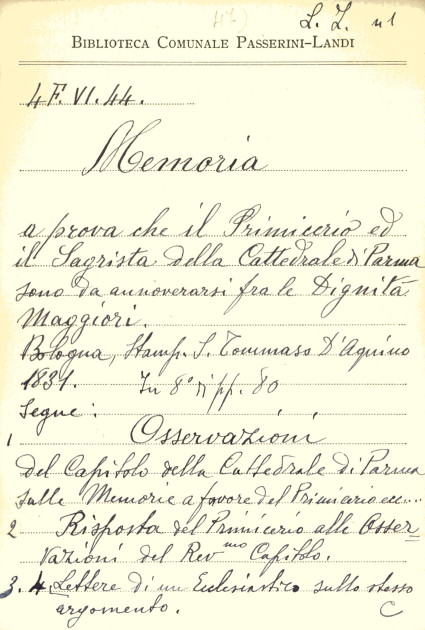 L. L. n 1
BIBLIOTECA COMUNALE PASSERINI-LANDI
4 F. VI. 44.
Memoria
a prova che il Primicerio ed
il Sagrista della Cattedrale di Parma
sono da annoverarsi fra le Dignità
Maggiori.
Bologna, Stamp. S. Tommaso D'Aquino
1831. In 8° di pp. 80
Segue:
1 Osservazioni
del Capitolo della Cattedrale di Parma
sulle Memorie a favore del Primicerio ecc...
2 Risposta del Primicerio alle Osser=
vazioni del Rev.mo Capitolo.
3. 4. Lettere di un Ecclesiastico sullo stesso
argomento. C